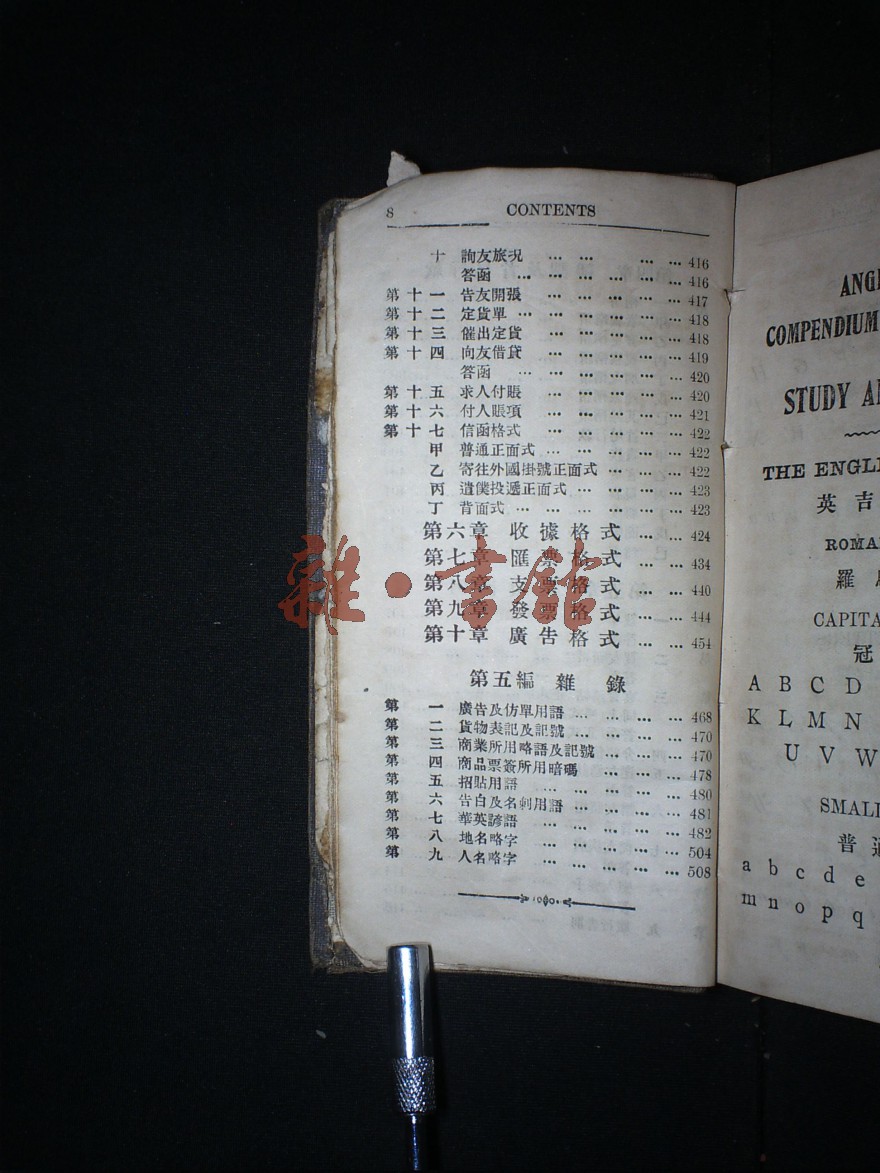 8 CONTENTS
十 詢友旅況 … … … … 416
答函 … … … … … 416
第十一 告友開張 … … … … … 417
第十二 定貨單 … … … … … … 418
第十三 催出定貨 … … … … … 418
第十四 向友借貸 … … … … … 419
答函 … … … … … … 420
第十五 求人付賬 … … … … … 420
第十六 付人賬項 … … … … … 421
第十七 信函格式 … … … … … 422
甲 普通正面式 … … … … … 422
乙 寄往外國掛號正面式 … … … 422
丙 遣僕投遞正面式 … … … … 423
丁 背面式 … … … … … … 423
第六章 收據格式 … … 424
第七章 匯票格式 … … 434
第八章 支票格式 … … 440
第九章 發票格式 … … 444
第十章 廣告格式 … … 454
第五編 雜錄
第一 廣告及仿單用語 … … … … 468
第二 貨物表記及記號 … … … … 470
第三 商業所用略語及記號 … … … 470
第四 商品票簽所用暗碼 … … … 478
第五 招貼用語 … … … … … 480
第六 告白及名刺用語 … … … … 481
第七 華英諺語 … … … … … 482
第八 地名略字 … … … … … 504
第九 人名略字 … … … … … 508
雜·書館
COMPENDIUM
STUDY
THE
英吉
羅
冠
A B C D
K L M N
U V W
普
a b c d e
m n o p q